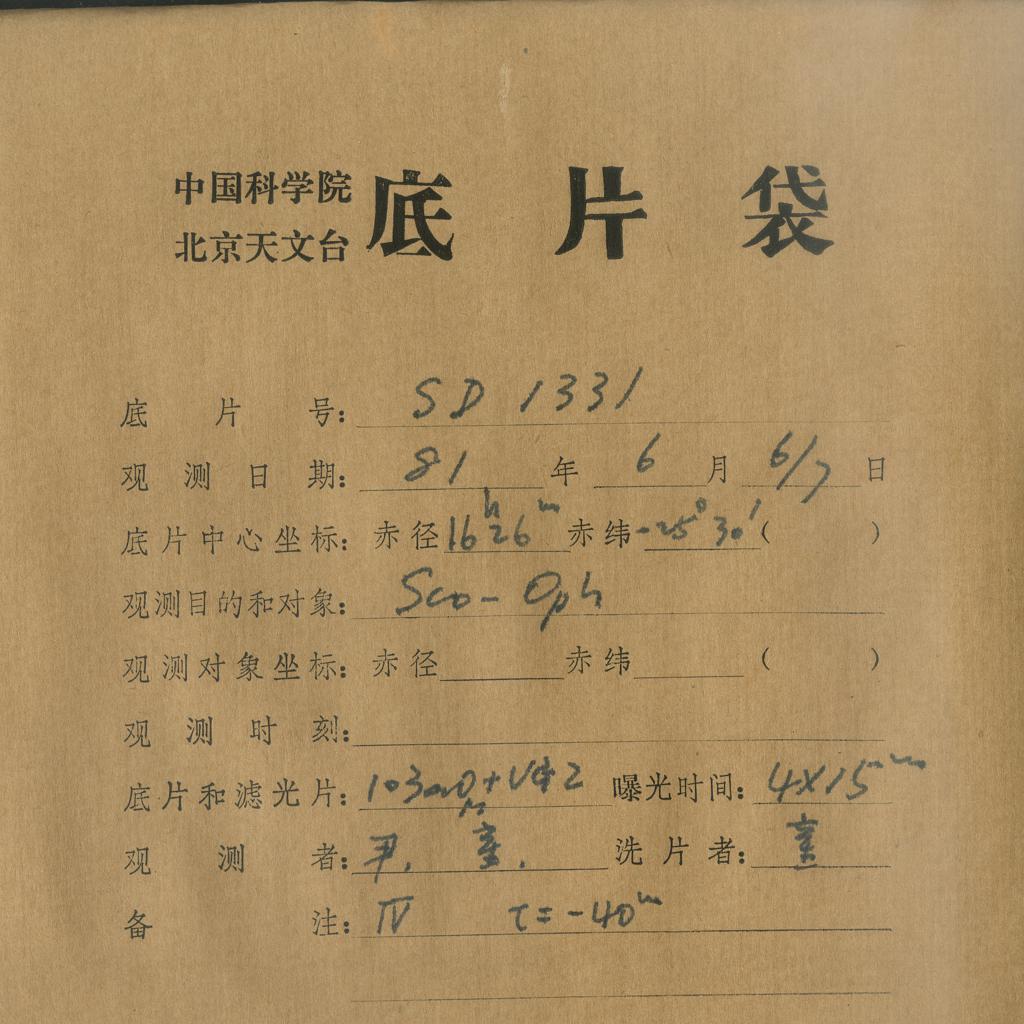 中国科学院
北京天文台
底片袋
底片号: SD 1331
观测日期: 81 年 6 月 6/7 日
底片中心坐标: 赤径 16h26m 赤纬 -25°30′ ( )
观测目的和对象: Sco-Oph
观测对象坐标: 赤径 赤纬 ( )
观测时刻:
底片和滤光片: 103aO + 曝光时间: 4×15m
观测者: 尹. 洗片者:
备注: IV τ=-40m